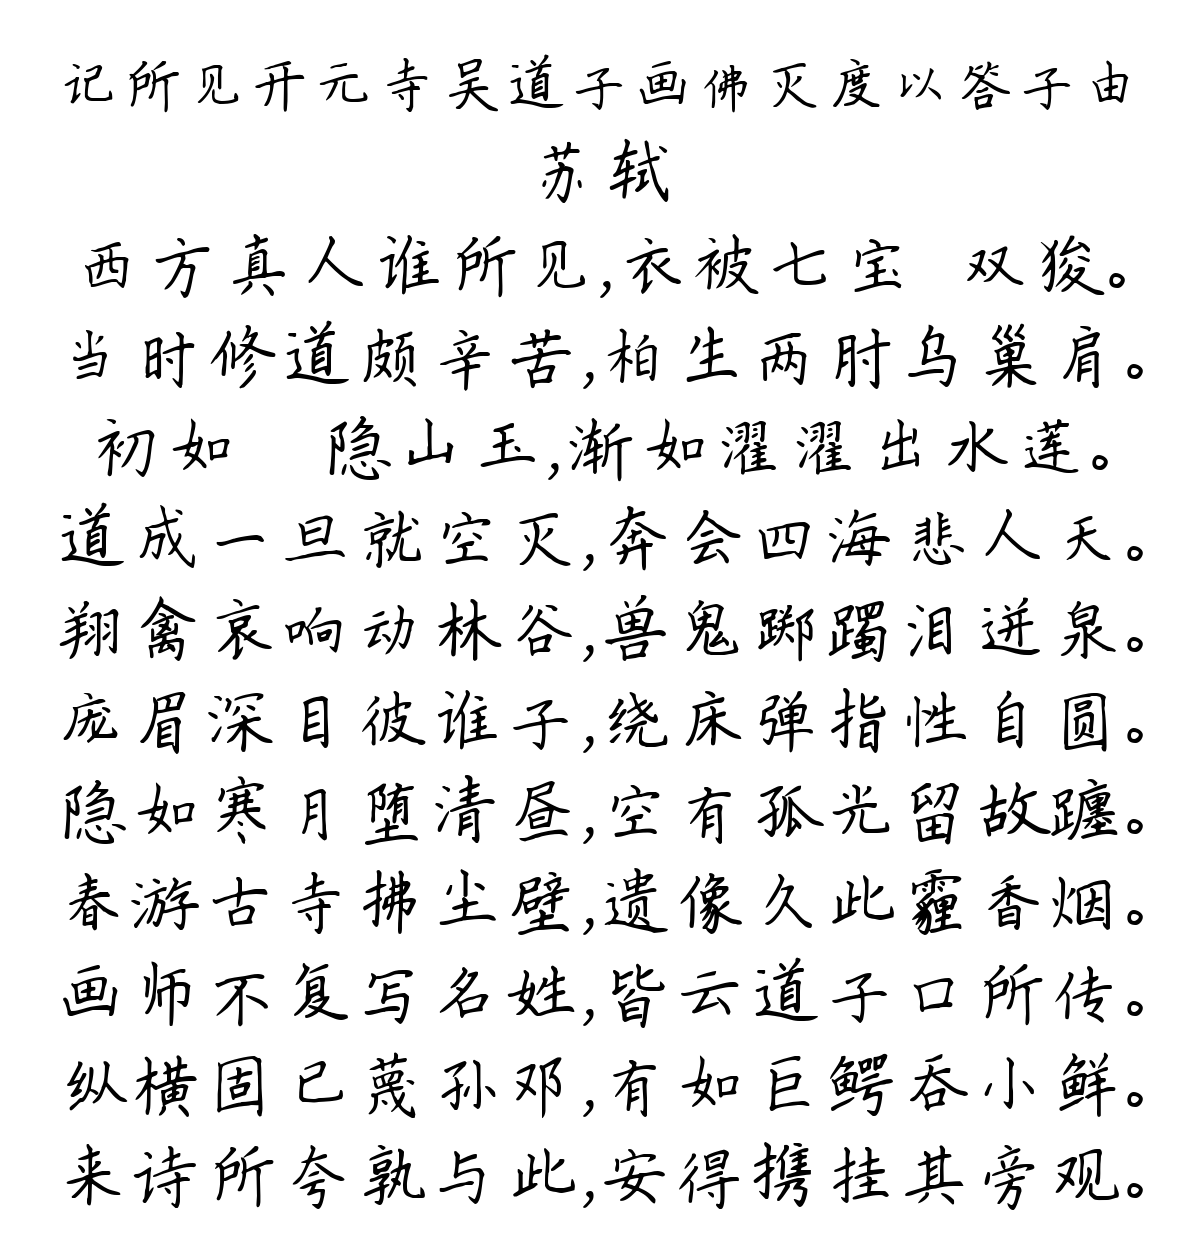 记所见开元寺吴道子画佛灭度以答子由
苏轼
西方真人谁所见,衣被七宝 双狻。
当时修道颇辛苦,柏生两肘乌巢肩。
初如 隐山玉,渐如濯濯出水莲。
道成一旦就空灭,奔会四海悲人天。
翔禽哀响动林谷,兽鬼踯躅泪迸泉。
庞眉深目彼谁子,绕床弹指性自圆。
隐如寒月堕清昼,空有孤光留故躔。
春游古寺拂尘壁,遗像久此霾香烟。
画师不复写名姓,皆云道子口所传。
纵横固已蔑孙邓,有如巨鳄吞小鲜。
来诗所夸孰与此,安得携挂其旁观。